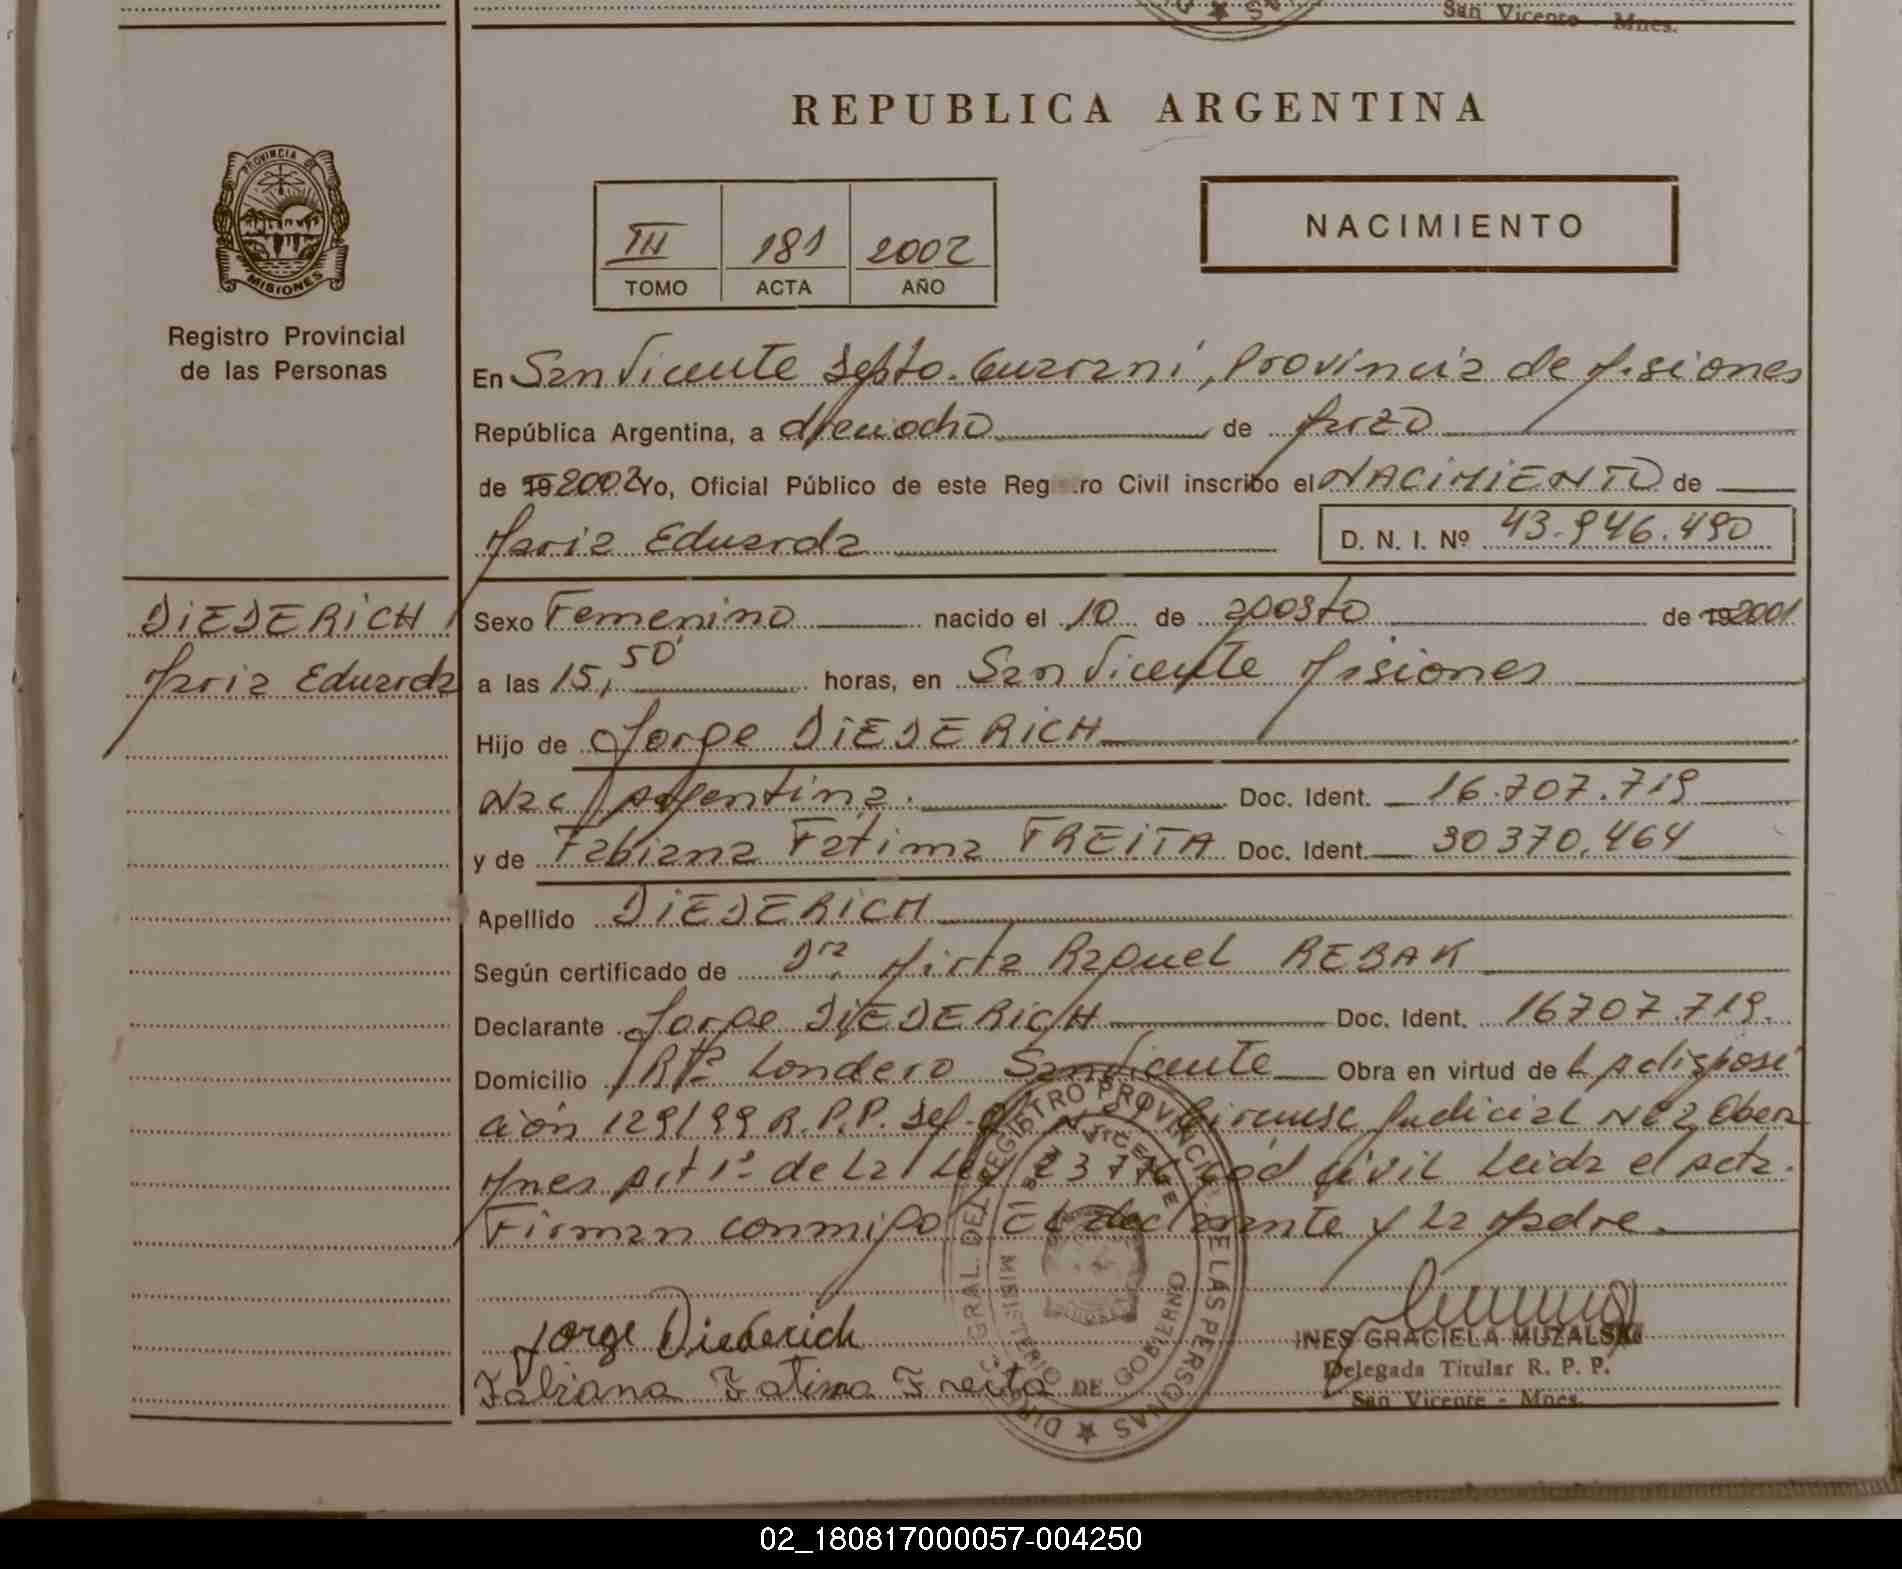 San Vicente Mnes.
REPUBLICA ARGENTINA
PROVINCIA DE
MISIONES
Registro Provincial
de las Personas
III 181 2002
TOMO ACTA AÑO
NACIMIENTO
En San Vicente Depto. Guarani, Provincia de Misiones
República Argentina, a dieciocho de Marzo
de 19 2002 Yo, Oficial Público de este Registro Civil inscribo el NACIMIENTO de
Maria Eduarda D. N. I. Nº 43.946.490
DIEDERICH
Maria Eduarda
Sexo Femenino nacido el 10 de agosto de 19 2001
a las 15,50 horas, en San Vicente Misiones
Hijo de Jorge DIEDERICH
Nac Argentina. Doc. Ident. 16.707.719
y de Fabiana Fatima FREITA Doc. Ident. 30 370.464
Apellido DIEDERICH
Según certificado de Dra. Mirta Raquel REBAK
Declarante Jorge DIEDERICH Doc. Ident. 16707.719.
Domicilio Rta Londero San Vicente Obra en virtud de La disposi
ción 129/99 R.P.P. Circunsc Judicial Nº 2 Obera
Mnes Art 1º de La Ley cod civil Leida el Acta.
Firman conmigo El declarante y La Madre.
Jorge Diederich
Fabiana Fatima Freita
DIREC. GRAL. DEL REGISTRO PROVINCIAL DE LAS PERSONAS
SAN VICENTE
MINISTERIO DE GOBIERNO
INES GRACIELA MUZALSKI
Delegada Titular R. P. P.
San Vicente - Mnes.
02_180817000057-004250